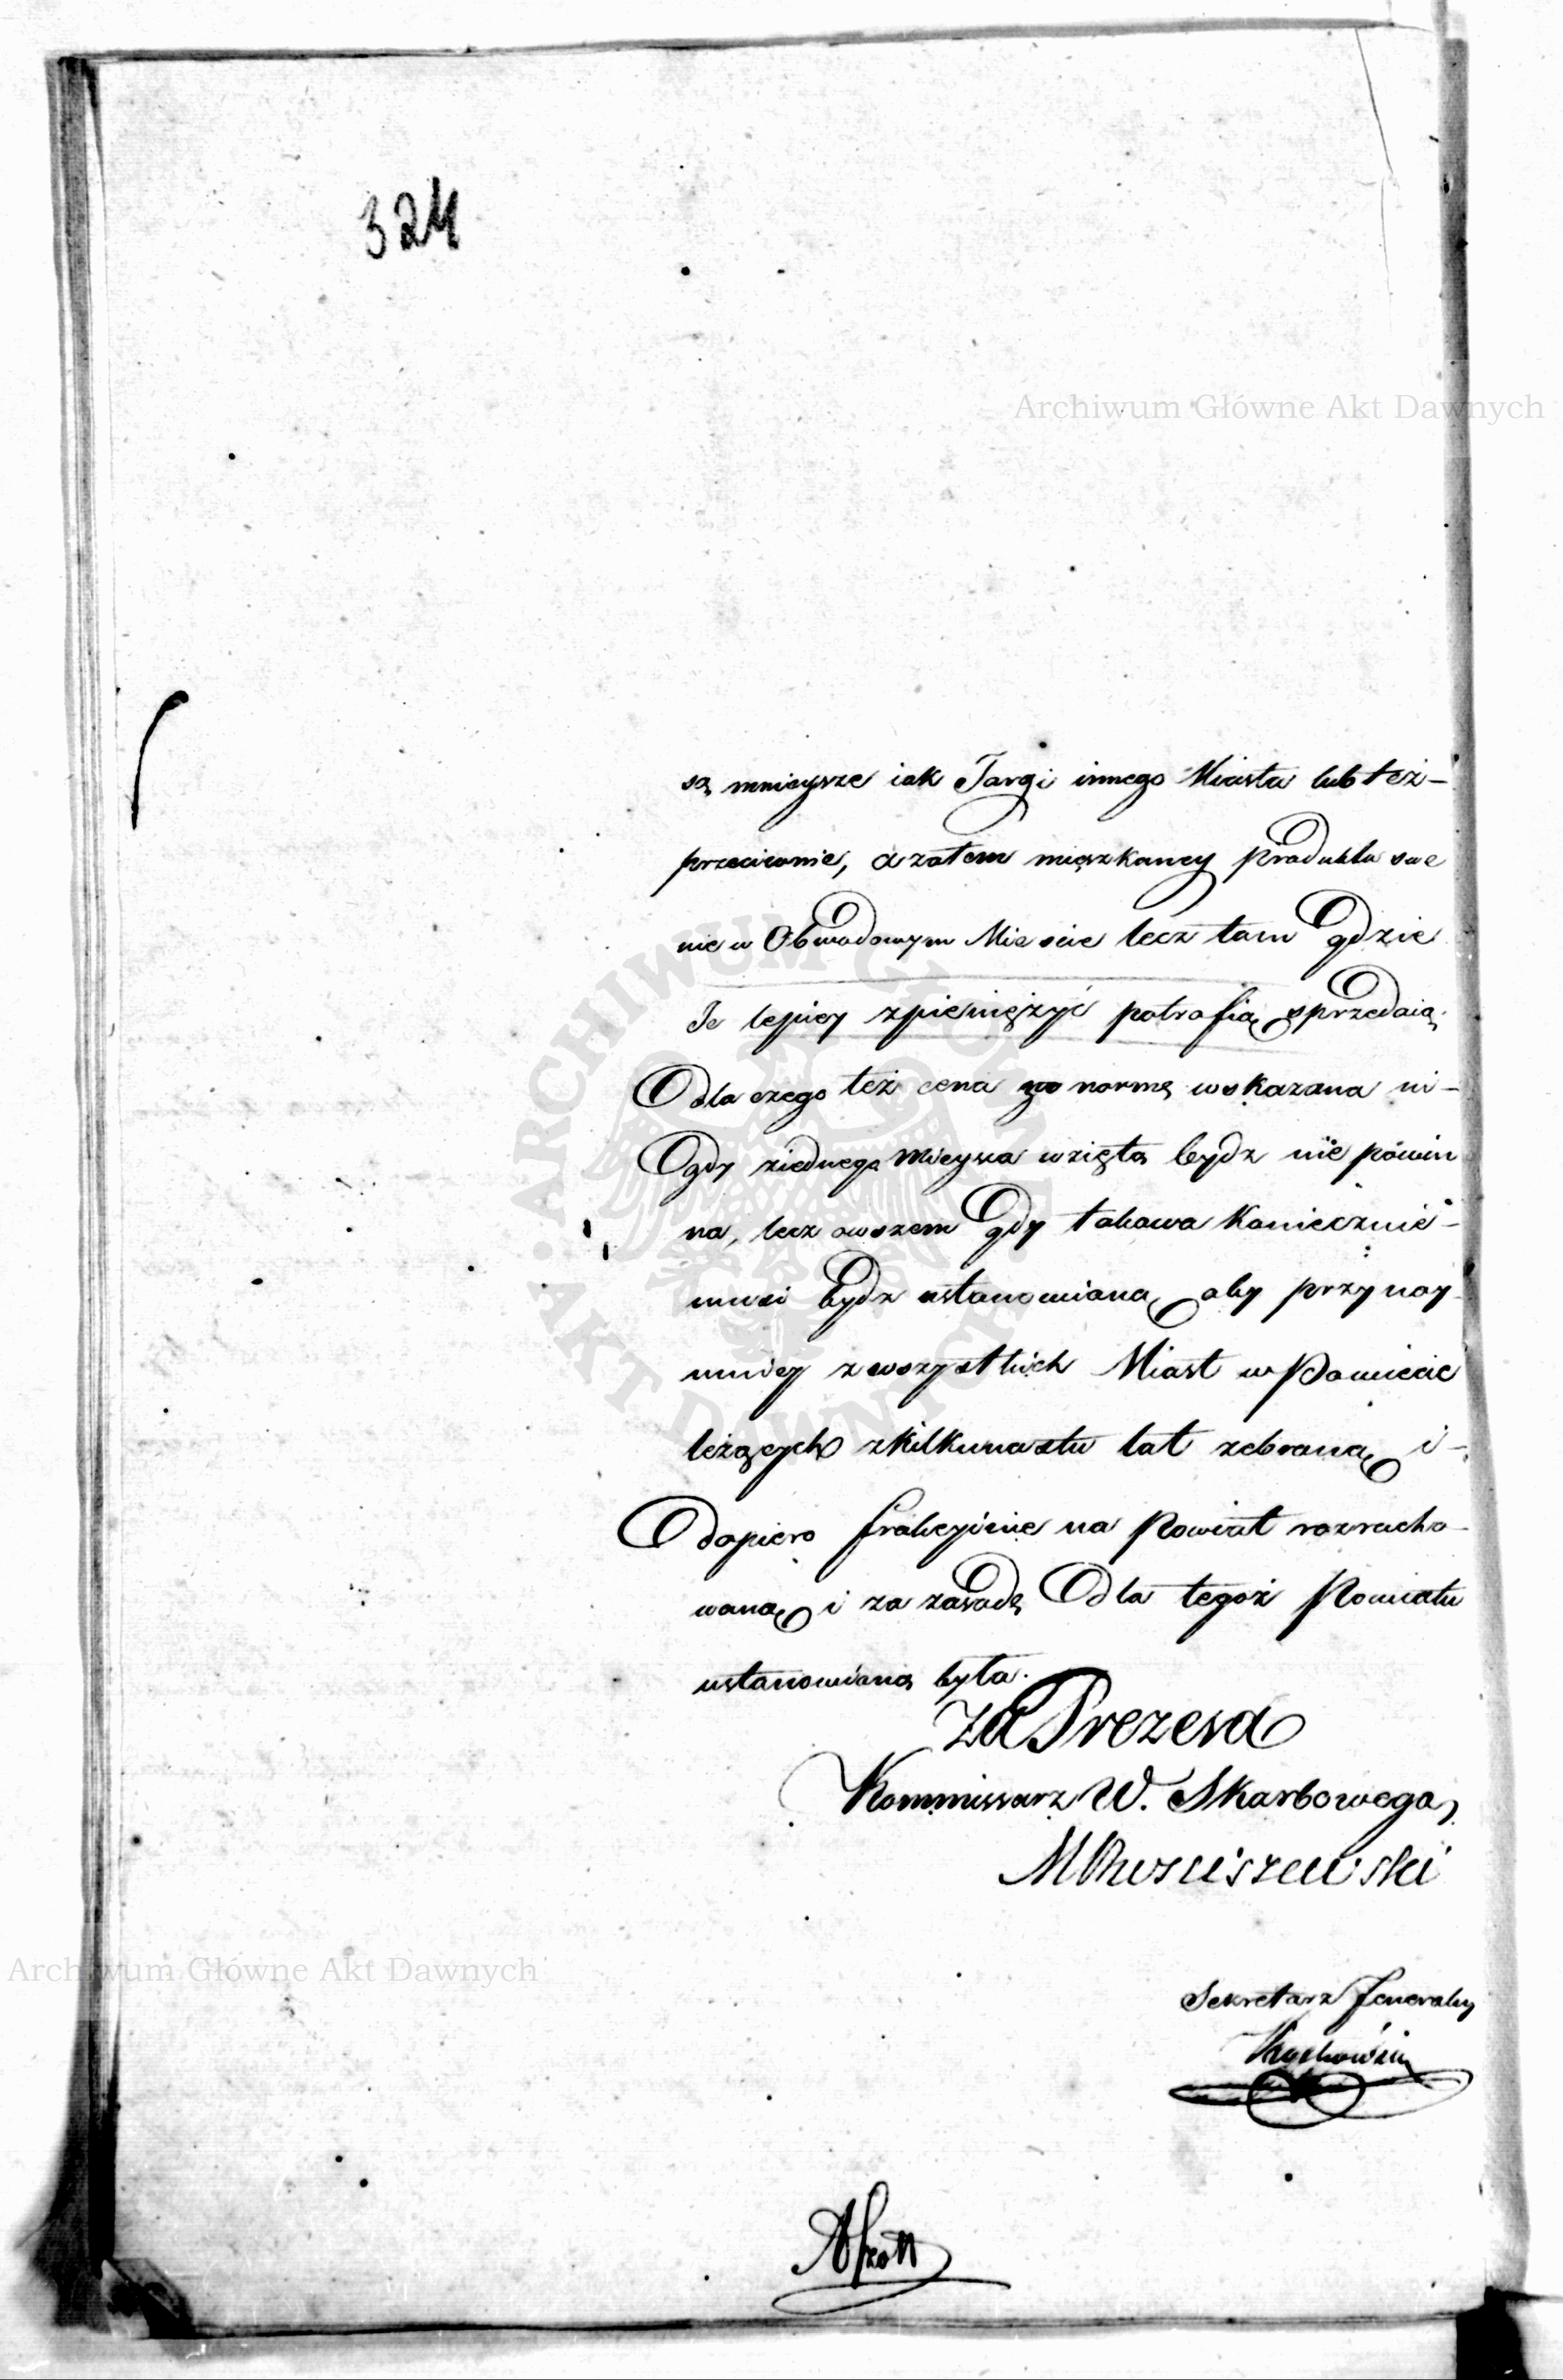 324
Archiwum Główne Akt Dawnych
są mnieysze iak Targi innego Miasta lub też –
przeciwnie, a zatem mięszkancy produkta swe
nie w Obwodowym Mieście lecz tam gdzie
Je lepiey zpieniężyć potrafią sprzedaią.
dla czego też cena za normę wskazana ni –
gdy ziednego Mieysca wzięta bydz nie powin
na, lecz owszem gdy takowa koniecznie –
musi bydz ustanowiana, aby przynay
mniey z wszystkich Miast w Powiecie
leżących z kilkunastu lat zebraną i –
dopiero frakcyinie na Powiat rozracho –
waną i za zasadę dla tegoż Powiatu
ustanowioną była.
Za Prezesa
Kommissarz W. Skarbowego,
Archiwum Główne Akt Dawnych
Sekretarz Jeneralny
ARCHIWUM GŁÓWNE
AKT DAWNYCH